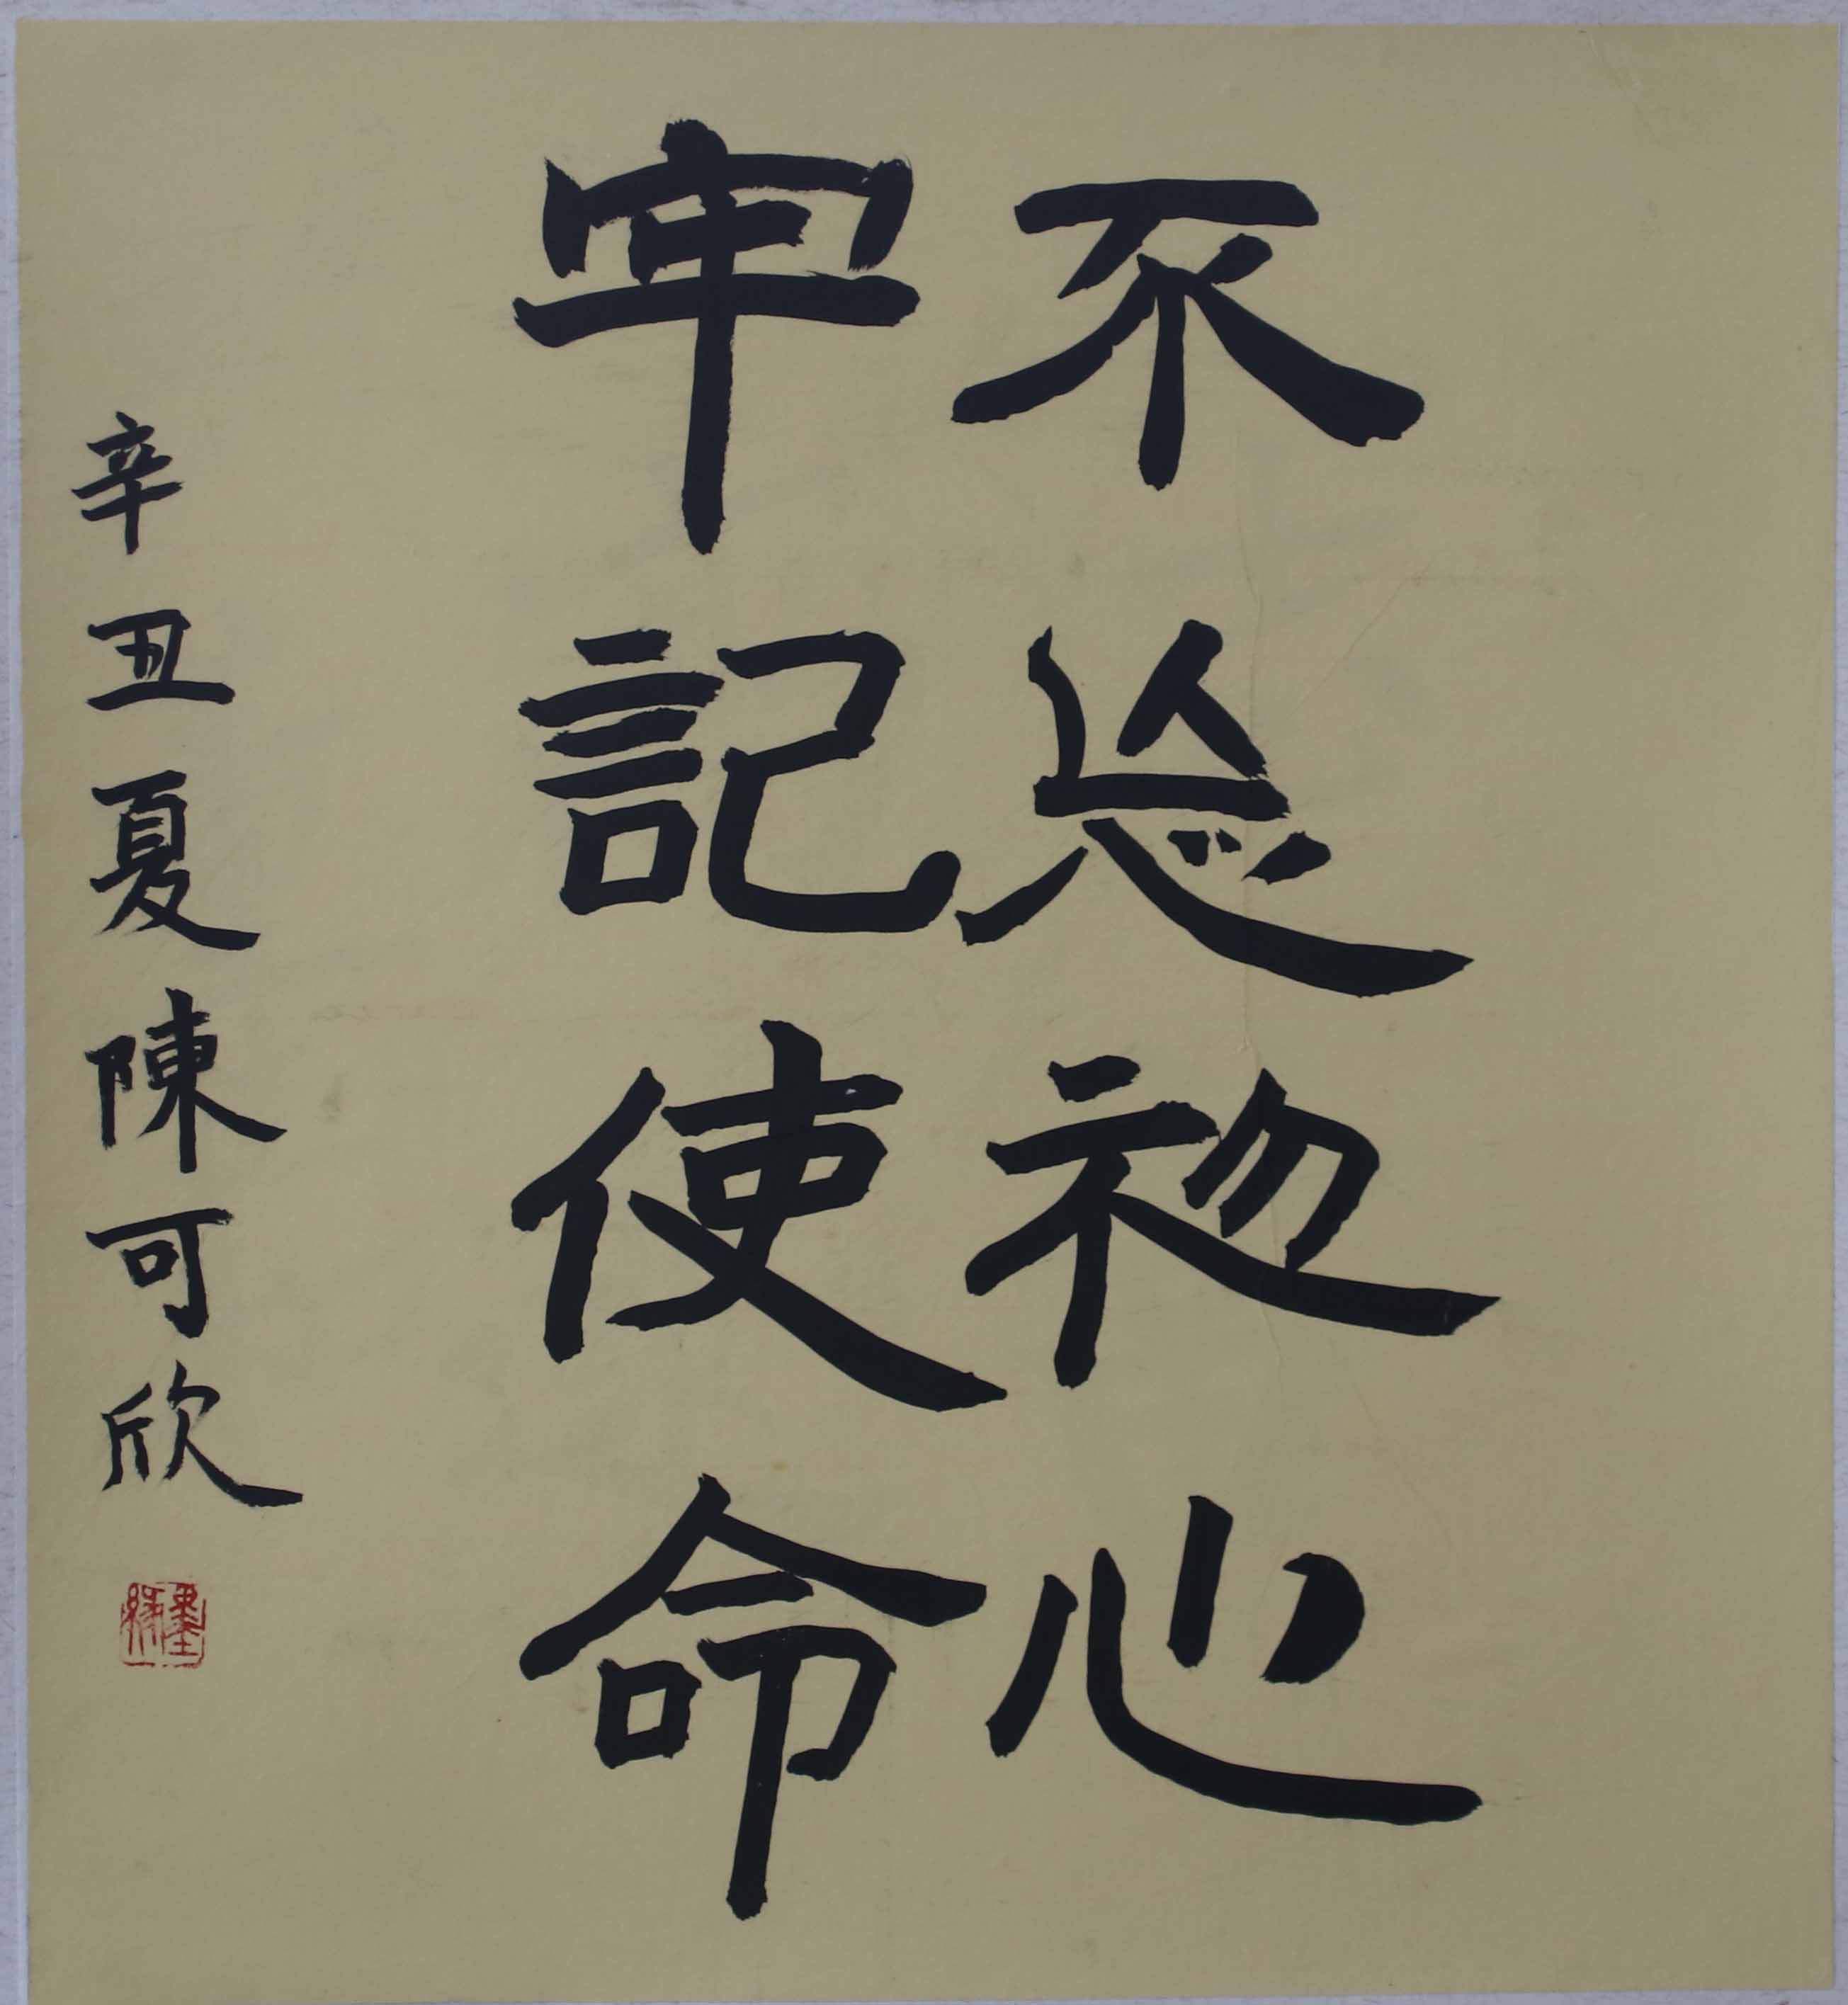 不忘初心
牢記使命
辛丑夏陳可欣